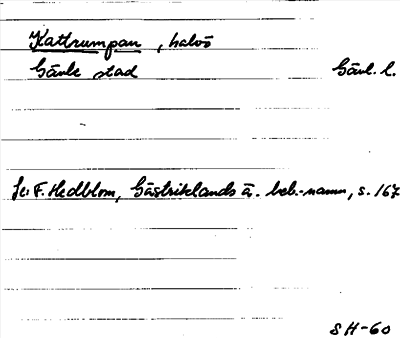 Kattrumpan, halvö
Gävle stad Gävl. l.
Se: F. Hedblom, Gästriklands ä. beb.-namn, s. 167
SH-60